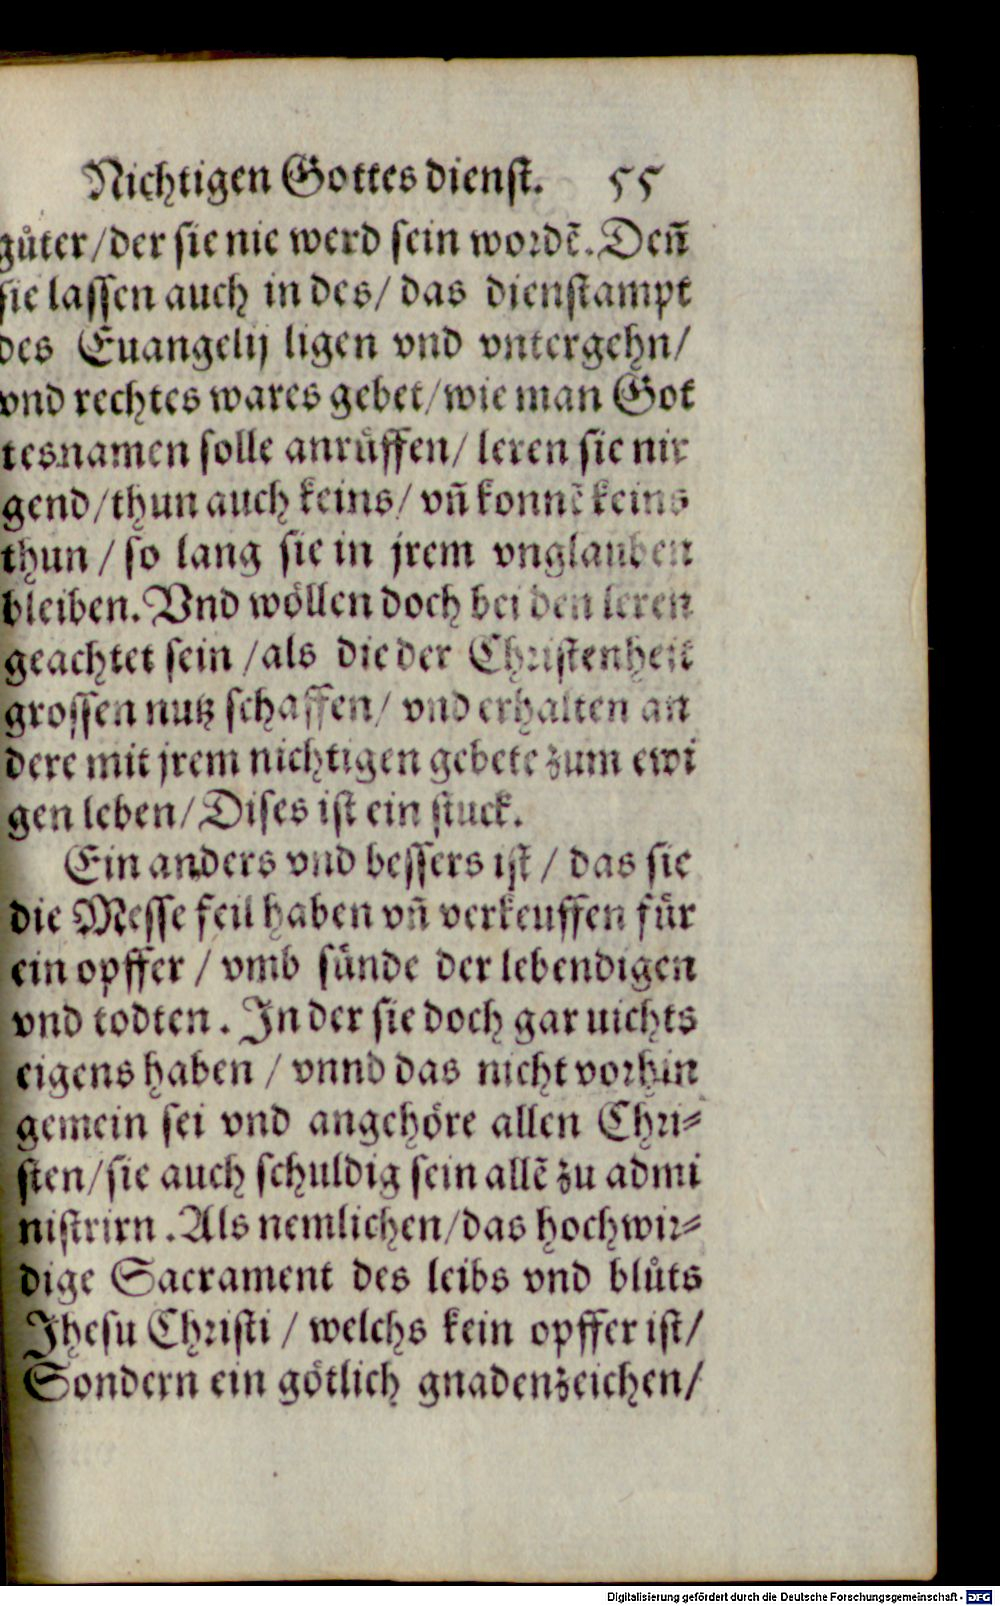 Nichtigen Gottes dienst. 55
guͤter/der sie nie werd sein wordẽ. Deñ
sie lassen auch in des/ das dienstampt
des Euangelij ligen vnd vntergehn/
vnd rechtes wares gebet/wie man Got
tesnamen solle anruͤffen/ leren sie nir
gend/thun auch keins/ vñ konnẽ keins
thun / so lang sie in jrem vnglauben
bleiben. Vnd woͤllen doch bei den leren
geachtet sein /als die der Christenheit
grossen nutz schaffen/ vnd erhalten an
dere mit jrem nichtigen gebete zum ewi
gen leben/ Dises ist ein stuck.
Ein anders vnd bessers ist / das sie
die Messe feil haben vñ verkeuffen fuͤr
ein opffer / vmb suͤnde der lebendigen
vnd todten. In der sie doch gar uichts
eigens haben / vnnd das nicht vorhin
gemein sei vnd angehoͤre allen Chri⸗
sten/sie auch schuldig sein allẽ zu admi
nistrirn. Als nemlichen/das hochwir⸗
dige Sacrament des leibs vnd bluͤts
Jhesu Christi / welchs kein opffer ist/
Sondern ein goͤtlich gnadenzeichen/
Digitalisierung gefördert durch die Deutsche Forschungsgemeinschaft - DFG